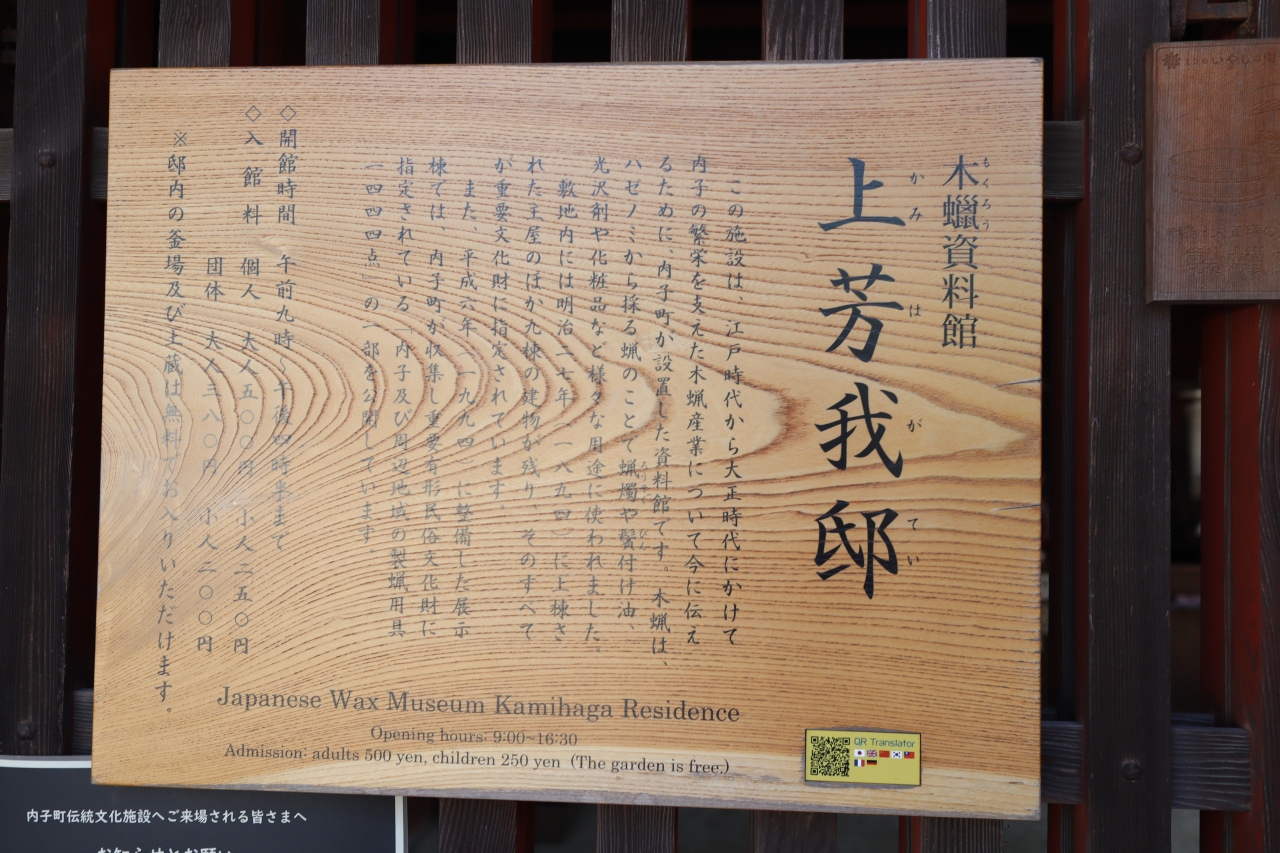 木蠟資料館
もくろう
上芳我邸
かみ は が てい
この施設は、江戸時代から大正時代にかけて
内子の繁栄を支えた木蝋産業について今に伝え
るために、内子町が設置した資料館です。木蝋は、
ハゼノミから採る蝋のことで蝋燭や鬢付け油、
光沢剤や化粧品など様々な用途に使われました。
敷地内には明治二七年（一八九四）に上棟さ
れた主屋のほか九棟の建物が残り、そのすべて
が重要文化財に指定されています。
また、平成六年（一九九四）に整備した展示
棟では、内子町が収集し重要有形民俗文化財に
指定されている「内子及び周辺地域の製蝋用具
一四四四点」の一部を公開しています
◇開館時間 午前九時～午後四時半まで
◇入館料 個人 大人五〇〇円 小人二五〇円
団体 大人三八〇円 小人二〇〇円
※邸内の釜場及び土蔵は無料でお入りいただけます。
Japanese Wax Museum Kamihaga Residence
Opening hours: 9:00~16:30
Admission: adults 500 yen, children 250 yen (The garden is free.)
QR Translator
内子町伝統文化施設へご来場される皆さまへ
お知らせとお願い